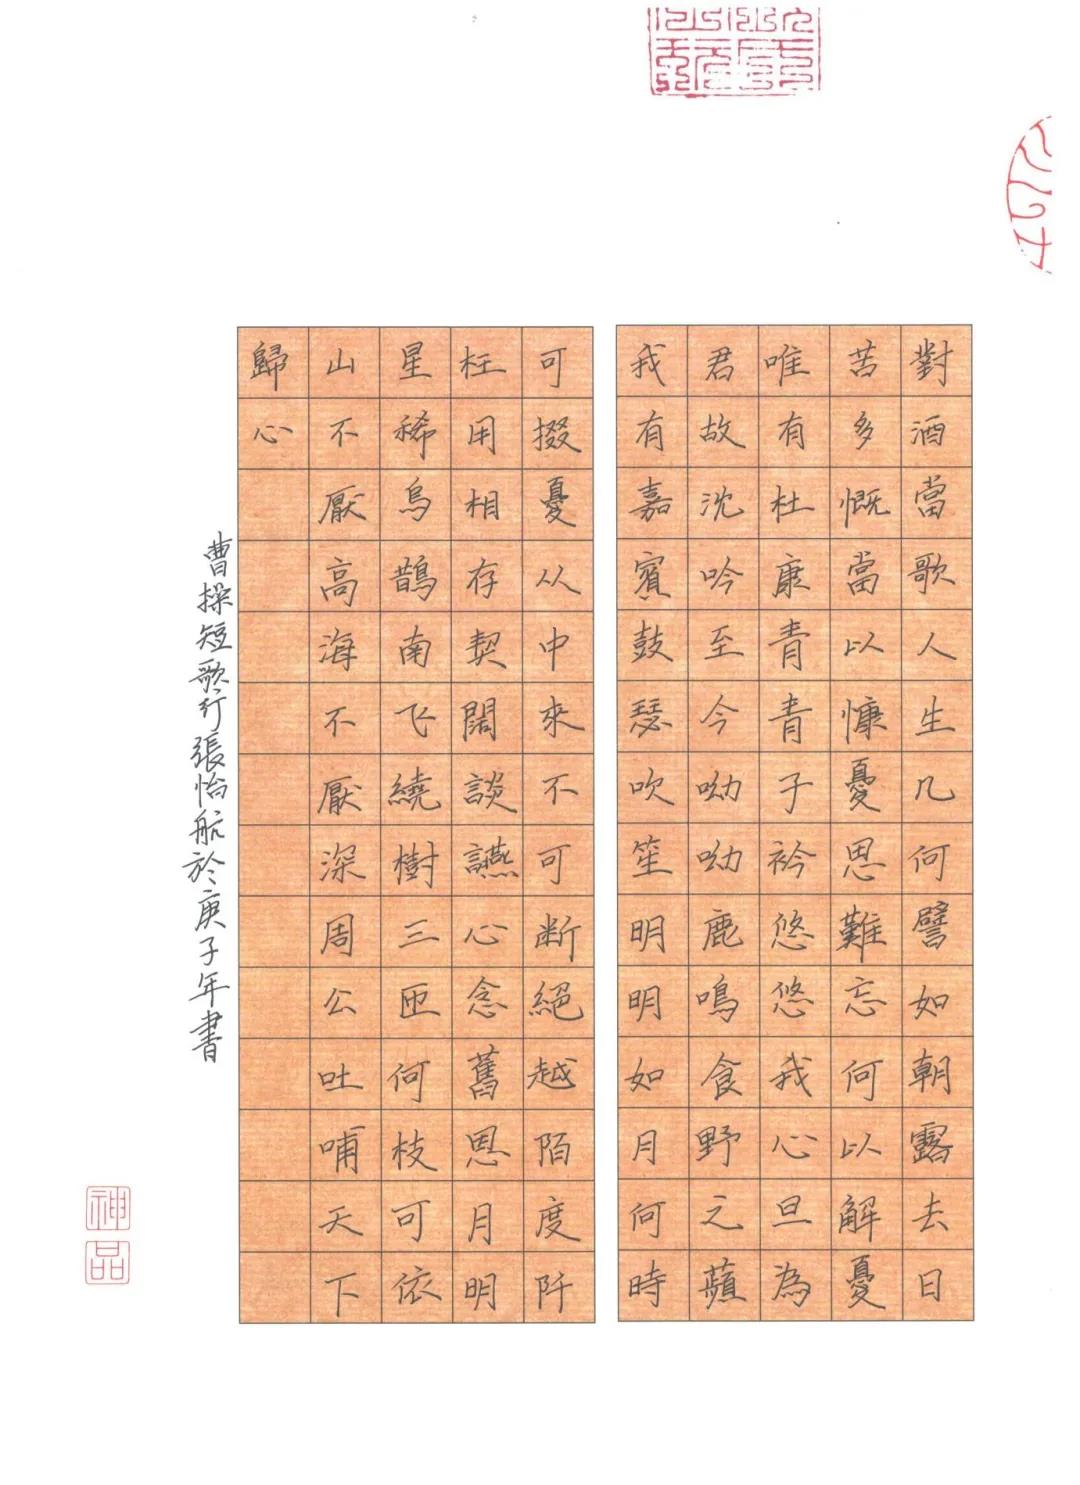 對酒當歌人生几何譬如朝露去日
苦多慨當以慷憂思難忘何以解憂
唯有杜康青青子衿悠悠我心旦為
君故沈吟至今呦呦鹿鳴食野之蘋
我有嘉賓鼓瑟吹笙明明如月何時
可掇憂从中來不可断絕越陌度阡
枉用相存契闊談讌心念舊恩月明
星稀烏鵲南飞繞樹三匝何枝可依
山不厭高海不厭深周公吐哺天下
歸心
曹操短歌行張怡航於庚子年書
神品